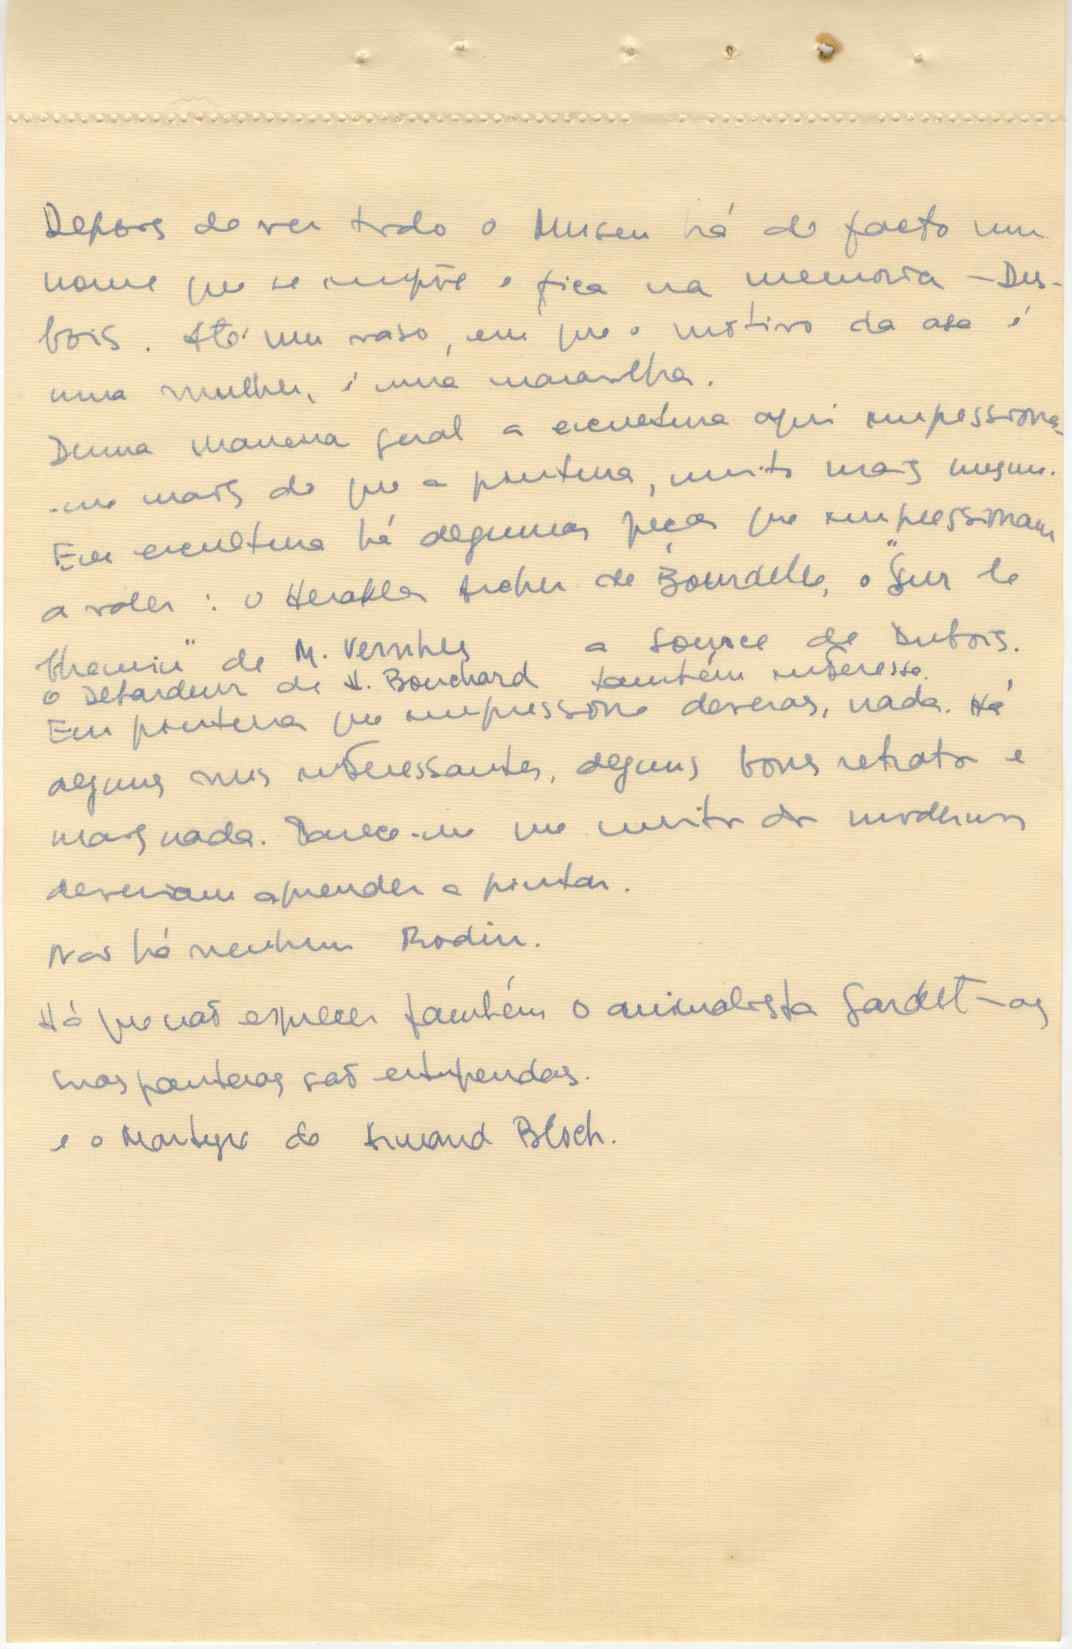 Depois de ver todo o Museu há de facto um
nome que se impõe e fica na memoria – Des-
bois. Até um vaso, em que o motivo da asa é
uma mulher, é uma maravilha.
Duma maneira geral a escultura aqui impressiona-
-me mais do que a pintura, muito mais mesmo.
Em escultura há algumas peças que impressionam
a valer: o Herakles Archer de Bourdelle, o "Sur le
Chemin" de M. a Source de Dubois.
o Debardeur de H. Bouchard também interessa.
Em pintura que impressione deveras, nada. Há
alguns nus interessantes, alguns bons retratos e
mais nada. Parece-me que muitos dos modernos
deveriam aprender a pintar.
Nao há nenhum Rodin.
Há que não esquecer também o animalista Gardet – as
suas panteras são estupendas.
e o Martyre de Armand Bloch.